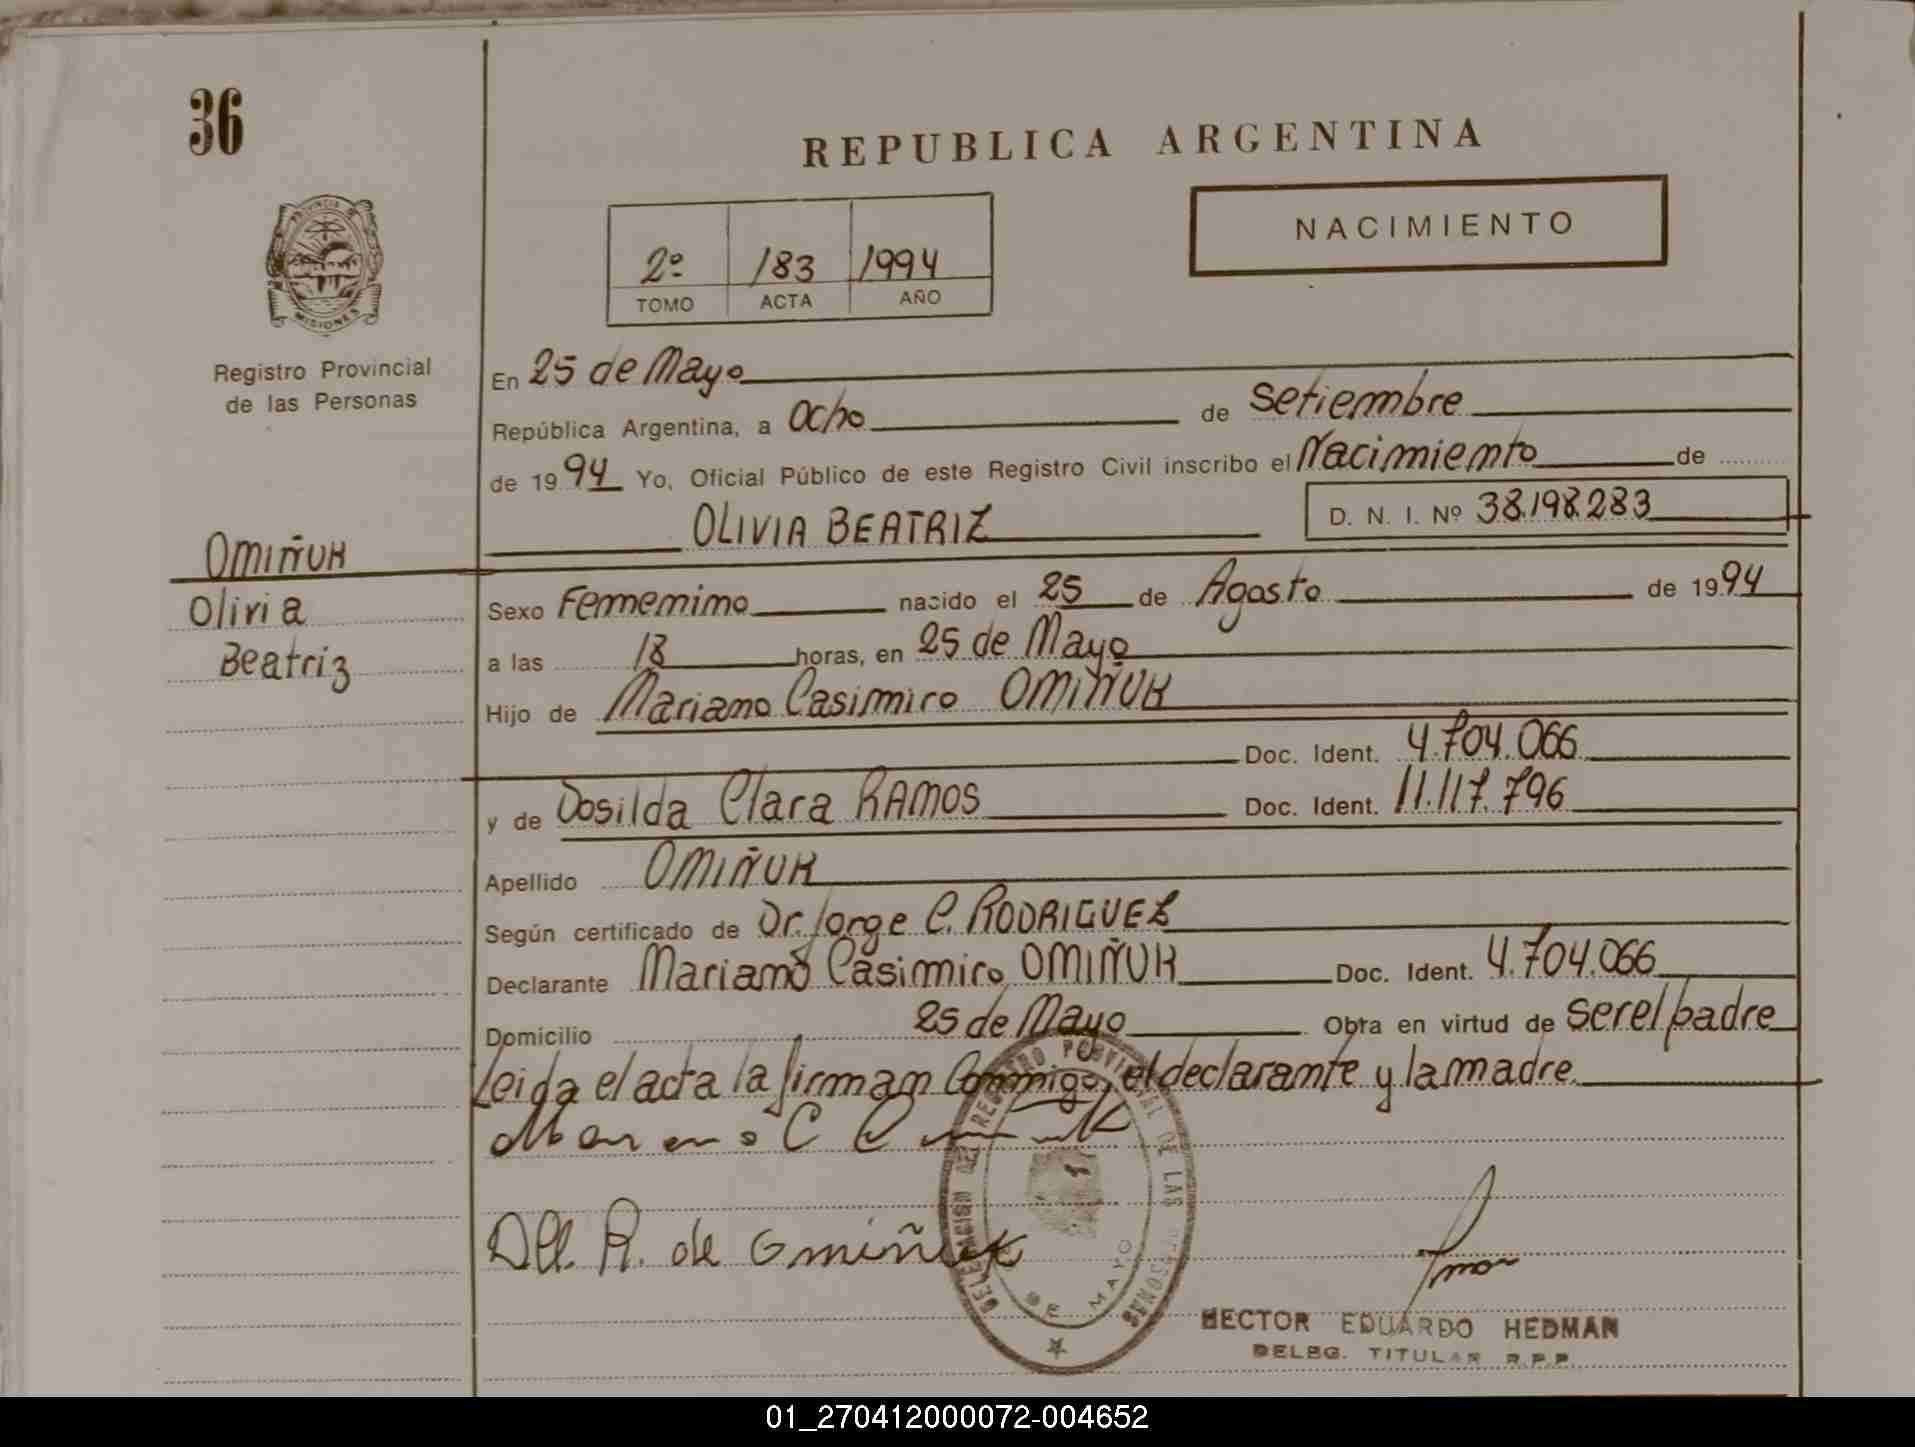 36
REPUBLICA ARGENTINA
NACIMIENTO
2º 183 1994
TOMO ACTA AÑO
PROVINCIA DE
MISIONES
Registro Provincial
de las Personas
En 25 de Mayo
República Argentina, a Ocho de Setiembre
de 1994 Yo, Oficial Público de este Registro Civil inscribo el Nacimiento de
OLIVIA BEATRIZ D. N. I. Nº 38.198.283
OMIÑUK
Olivia
Beatriz
Sexo Femenino nacido el 25 de Agosto de 1994
a las 18 horas, en 25 de Mayo
Hijo de Mariano Casimiro OMIÑUK
Doc. Ident. 4.704.066
y de Dosilda Clara RAMOS Doc. Ident. 11.117.796
Apellido OMIÑUK
Según certificado de Dr. Jorge C. RODRIGUEZ
Declarante Mariano Casimiro OMIÑUK Doc. Ident. 4.704.066
Domicilio 25 de Mayo Obra en virtud de ser el padre
Leida el acta la firman Conmigo, el declarante y la madre
R. de Omiñuk
DELEGACION DEL REGISTRO PROVINCIAL DE LAS PERSONAS
DE MAYO
HECTOR EDUARDO HEDMAN
DELEG. TITULAR R.P.P.
01_270412000072-004652